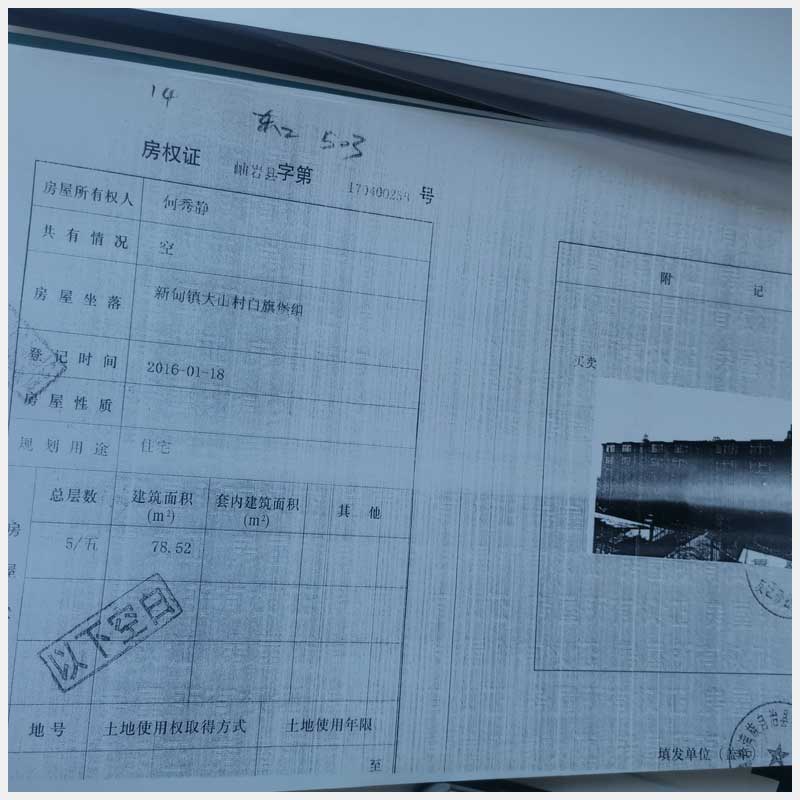 14
东2 503
房权证 岫岩县字第 号
房屋所有权人 何秀静
共有情况 空
房屋坐落 新甸镇大山村白旗堡组
登记时间 2016-01-18
房屋性质
规划用途 住宅
总层数 建筑面积(m²) 套内建筑面积(m²) 其他
5/五 78.52
以下空白
地号 土地使用权取得方式 土地使用年限
至
附记
买卖
填发单位(盖章)